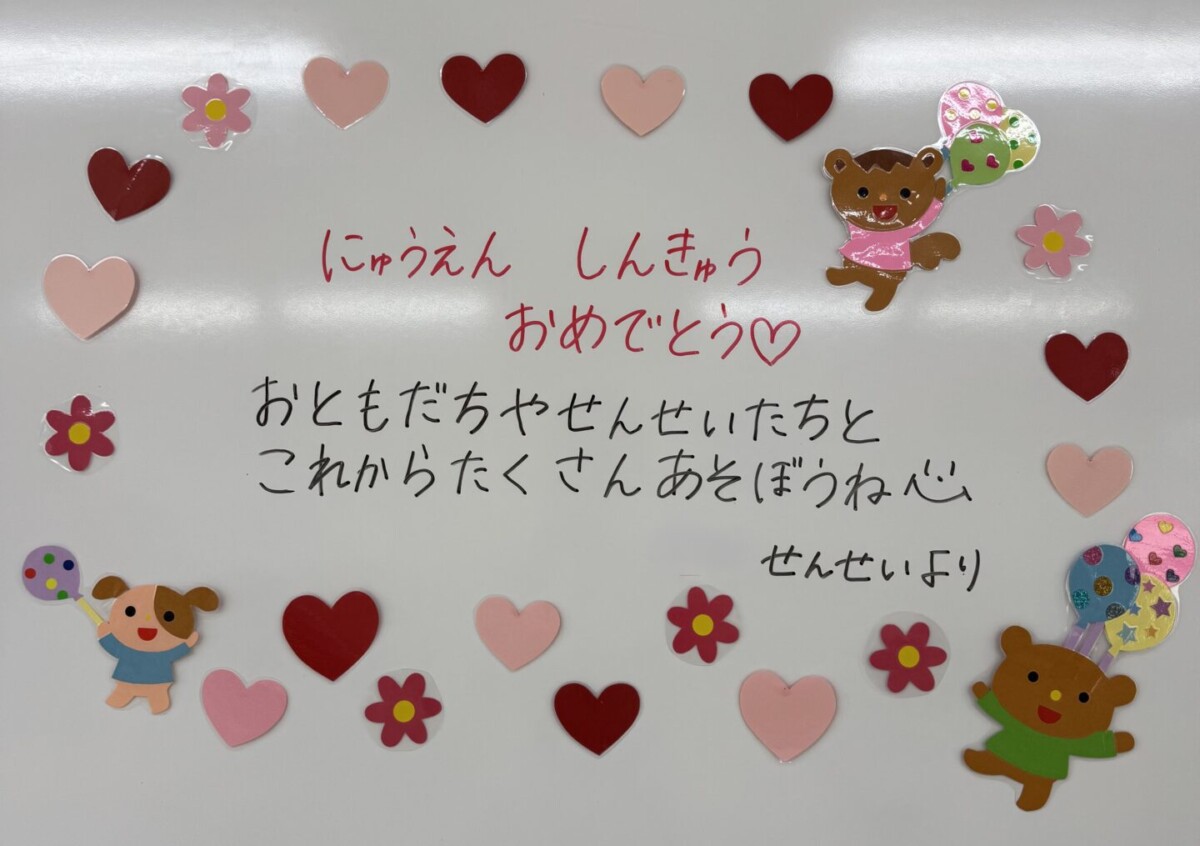 にゅうえん　しんきゅう
おめでとう♡
おともだちやせんせいたちと
これからたくさんあそぼうね
せんせいより